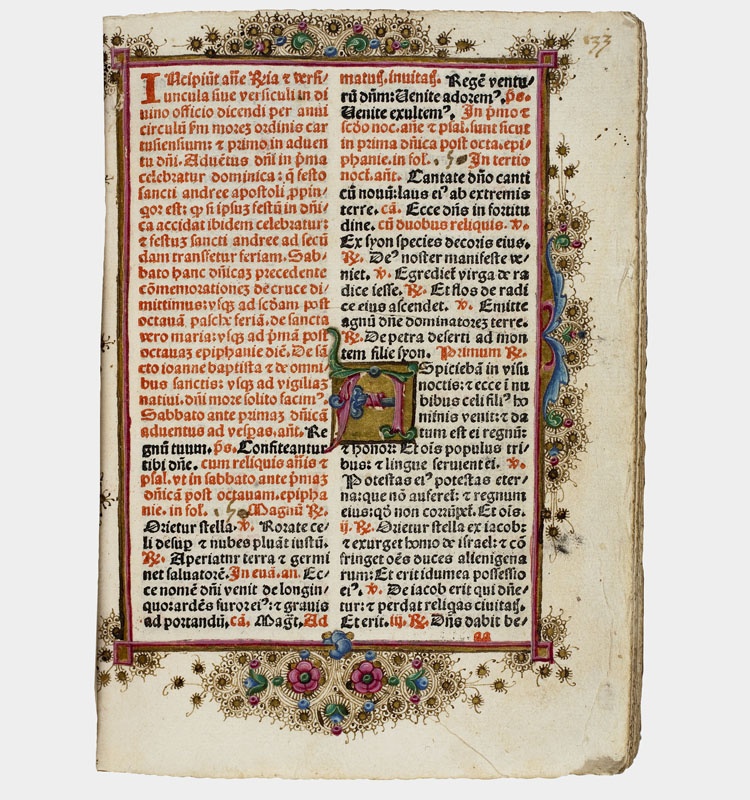 33
INcipiũt añe Ria ⁊ versi/
uncula siue versiculi in di
uino officio dicendi per anni
circulũ ẜm moreȝ ordinis car
tusiensium: ⁊ primo in aduen
tu dñi. Aduẽtus dñi in p̃ma
celebratur dominica: q̃ festo
sancti andree apostoli ꝓpin/
qor est: ꝙ si ipsuȝ festũ in dñi/
ca accidat ibidem celebratur:
⁊ festuȝ sancti andree ad secũ
dam transfetur feriam. Sab/
bato hanc dñicaȝ precedente
cõmemorationeȝ de cruce di/
mittimus: vsqȝ ad scd̃am post
octauã pasche feriã. de sancta
vero maria: vsqȝ ad p̃mam post
octauaȝ epiphanie diẽ. De sã/
cto ioanne baptista ⁊ de omni/
bus sanctis: vsqȝ ad vigiliaȝ
natiui. dñi more solito facim⁹.
Sabbato ante primaȝ dñicã
aduentus ad vesp̃as. añt. Re
gnũ tuum. p̃s. Confiteantur
tibi dñe. cum reliquis añis ⁊
psal. vt in sabbato ante p̃maȝ
dñicã post octauam. epipha
nie. in fol. Magnũ ℞.
Orietur stella. ℣. Rorate ce/
li desuꝑ ⁊ nubes pluãt iustũ.
℞. Aperiatur terra ⁊ germi
net saluatorẽ. In euã. an. Ec/
ce nomẽ dñi venit de longin/
quo: ardẽs furor ei⁹: ⁊ grauis
ad portandũ. cã. Magt̃. Ad
matuꝭ. inuitaꝭ. Regẽ ventu/
rũ dñm: Venite adorem⁹. p̃s.
Venite exultem⁹. In p̃mo ⁊
scd̃o noc. añe ⁊ psal. sunt sicut
in prima dñica post octa. epi/
phanie. in fol. In tertio
noct. añt. Cantate dño canti
cũ nouũ: laus ei⁹ ab extremis
terre. cã. Ecce dñs in fortitu
dine. cũ duobus reliquis. ℣.
Ex syon species decoris eius.
℞. De⁹ noster manifeste ve/
niet. ℣. Egrediet̃ virga de ra
dice iesse. ℞. Et flos de radi
ce eius ascendet. ℣. Emitte
agnũ dñe dominatoreȝ terre.
℞. De petra deserti ad mon
tem filie syon. Primum ℞.
ASpiciebã in visu
noctis: ⁊ ecce ĩ nu
bibus celi fili⁹ ho
minis venit: ⁊ da
tum est ei regnũ:
⁊ honor: Et oĩs populus tri/
bus: ⁊ lingue seruient ei. ℣.
Potestas ei⁹ potestas eter/
na: que nõ auferet̃: ⁊ regnum
eius: qð non corrũpet̃. Et oĩs.
ij. ℞. Orietur stella ex iacob:
⁊ exurget homo de israel: ⁊ cõ
fringet oẽs duces alienigena
rum: Et erit idumea possessio
ei⁹. ℣. De iacob erit qui dñe/
tur: ⁊ perdat reliqas ciuitaꝭ.
Et erit. iij. ℞. Dñs dabit be/
aa